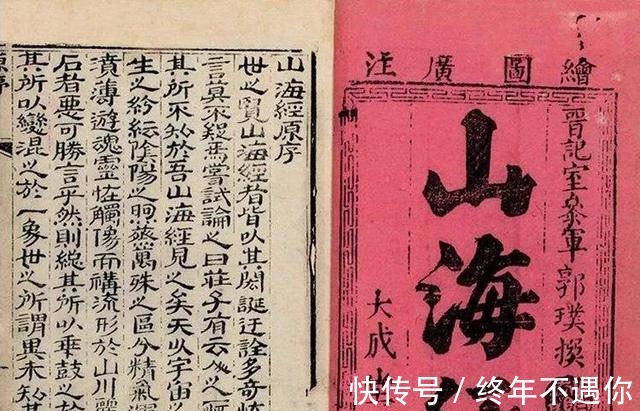 繪圖廣注
晉記室叅軍郭璞撰
山海
大成
山海經原序
世之覽山海經者皆以其閎誕迂誇多奇
言莫不疑焉嘗試論之曰莊子有云人之
其所不知於吾山海經見之矣夫以宇宙
生之紛紜陰陽之煦蒸萬殊之區分精氣渾
濆薄遊魂靈怪觸像而構流形於山川麗
石者惡可勝言乎然則總其所以乖鼓之
其所以變混之於一象世之所謂異未知其
原序
快传号 / 终年不遇你